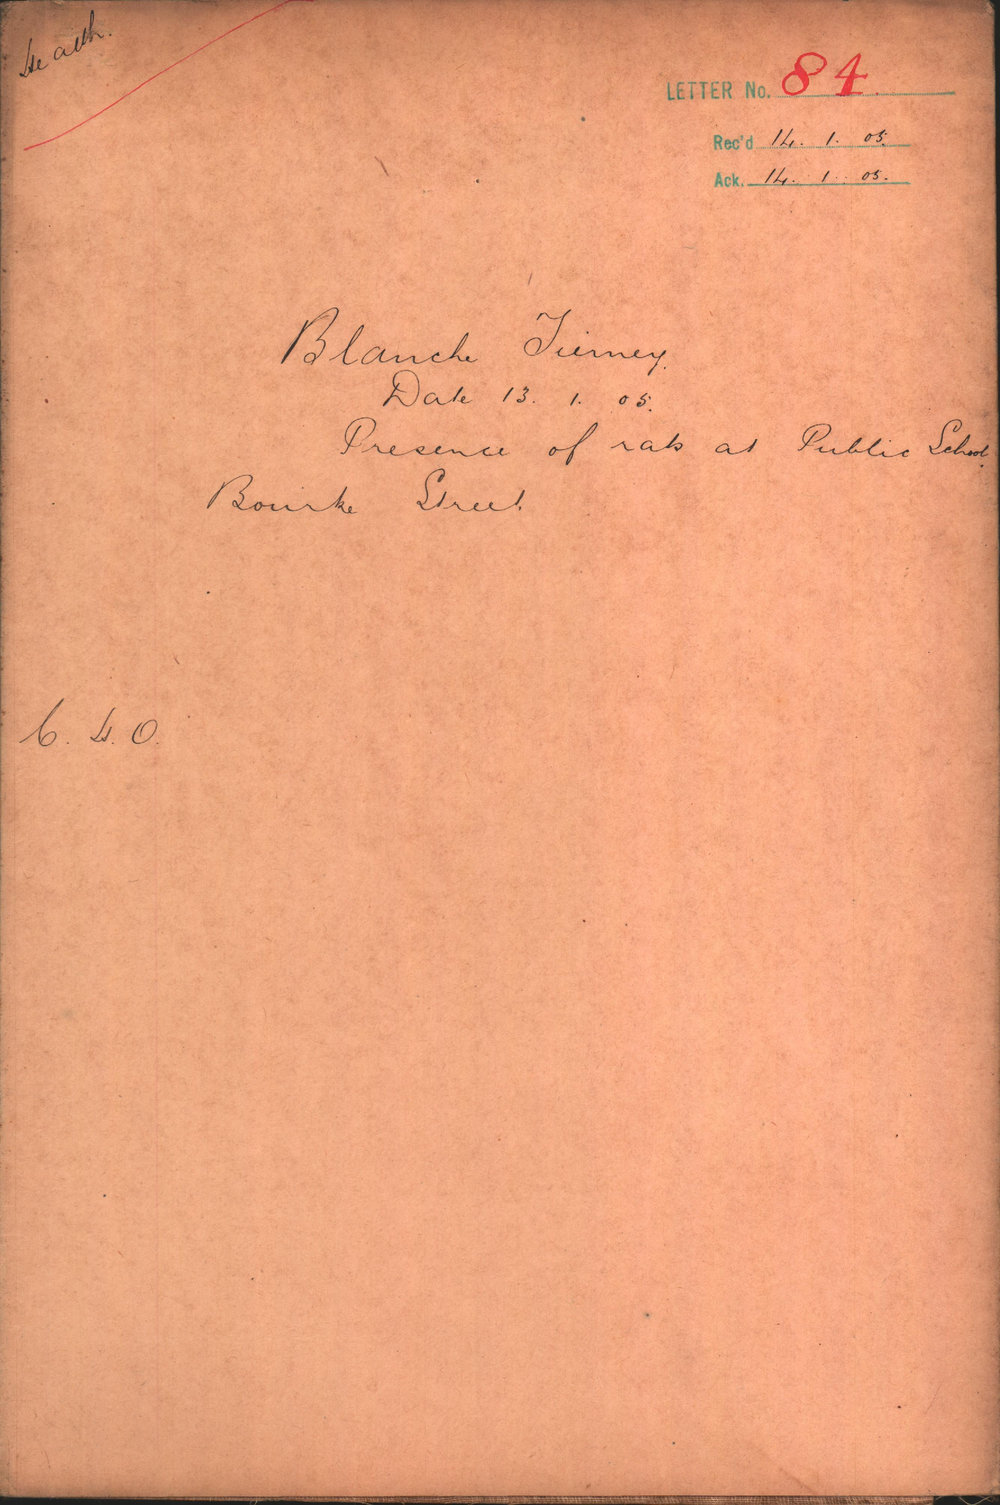 Health.
LETTER No. 84
Rec'd 14. 1. 05.
Ack. 14. 1. 05.
Blanche Tierney.
Date 13. 1. 05.
Presence of rats at Public School,
Bourke Street
C. H. O.